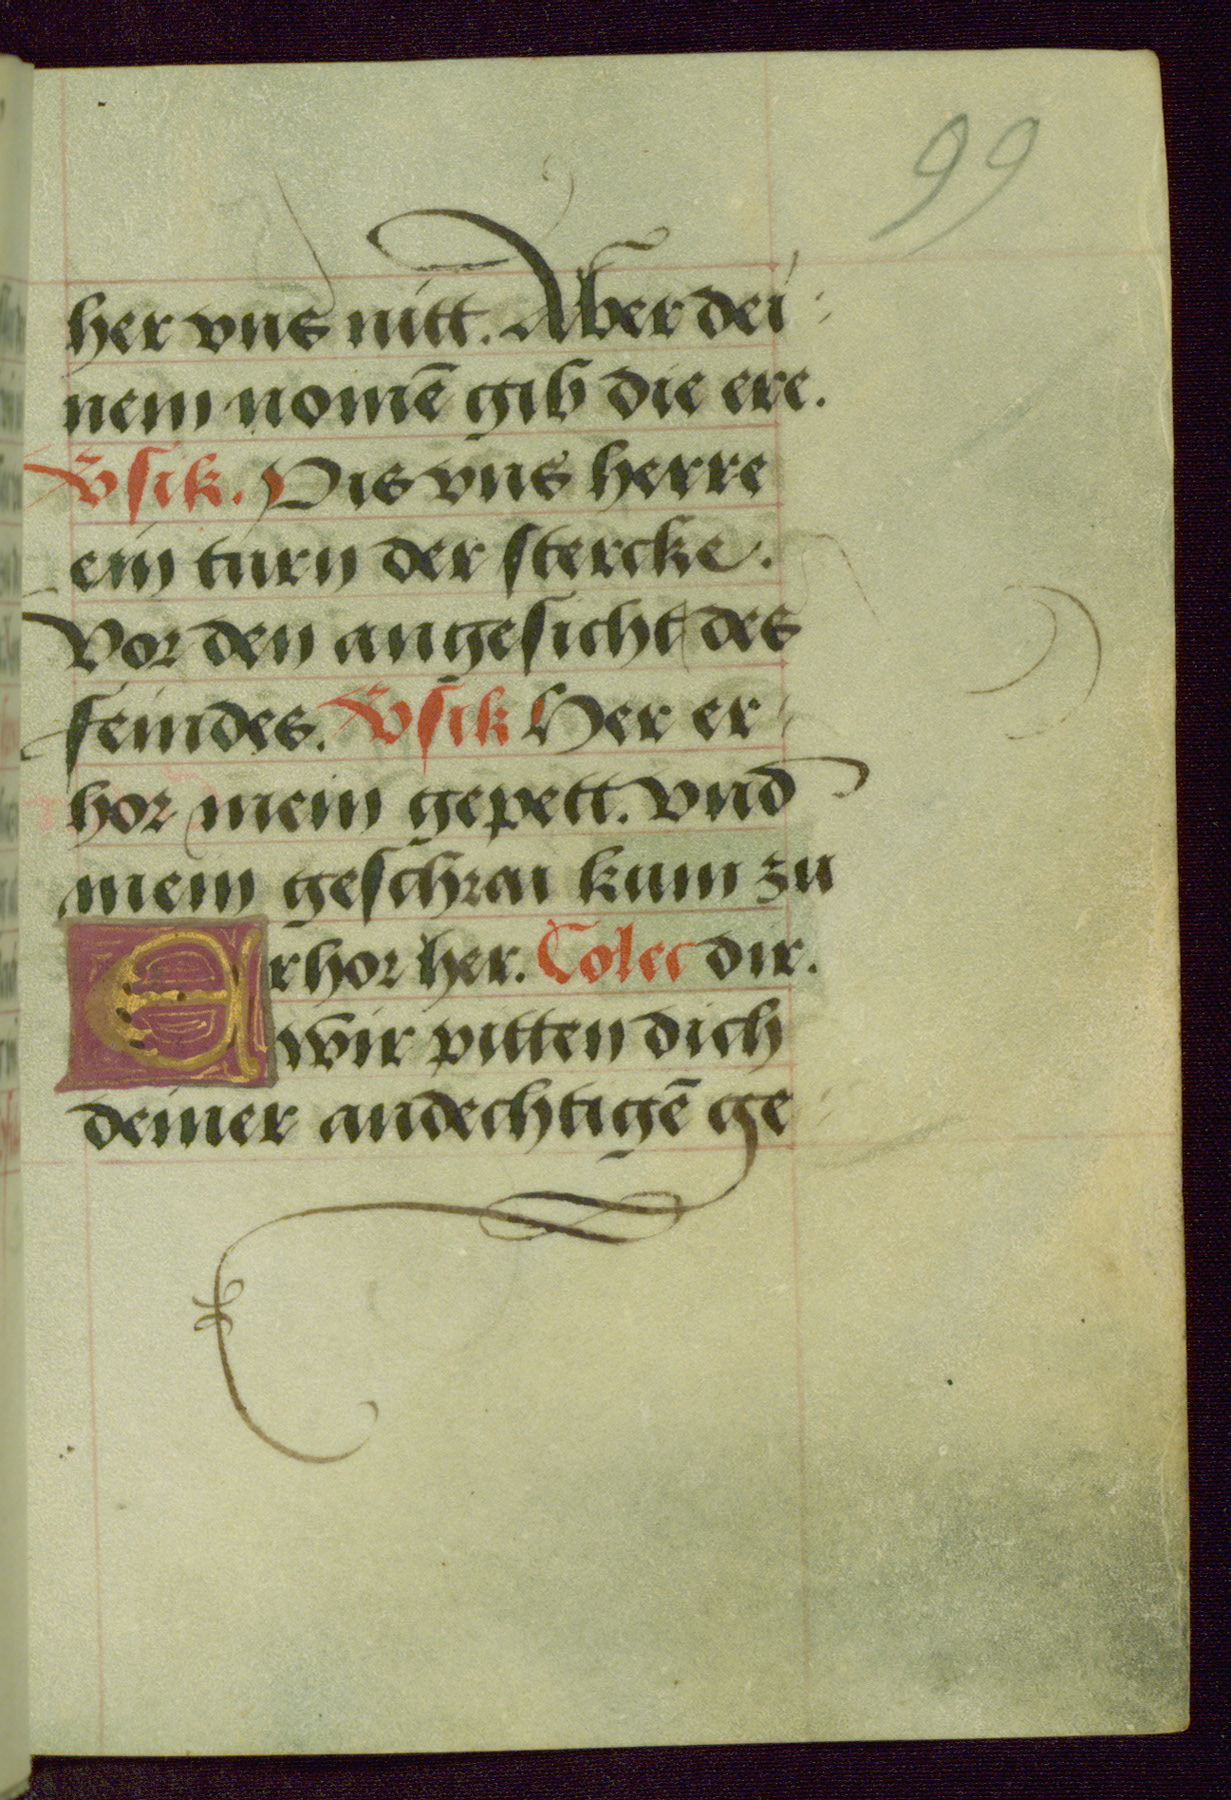 99
her vns nitt. Aber dei
nem nomē gib die ere.
Vsik. Pis vns herre
ein turn der stercke.
Vor den angesicht des
feindes. Vsik Her er
hor mein gepett. vnd
mein geschrai kum zu
Erhor her. Colec dir.
wir pitten dich
deiner andechtigē ge